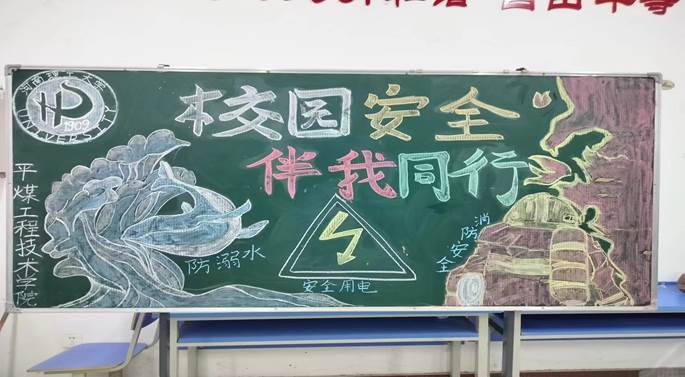 校园安全
伴我同行
河南理工大学
UNIVERSITY
1909
平煤工程技术学院
防溺水
安全用电
消防安全